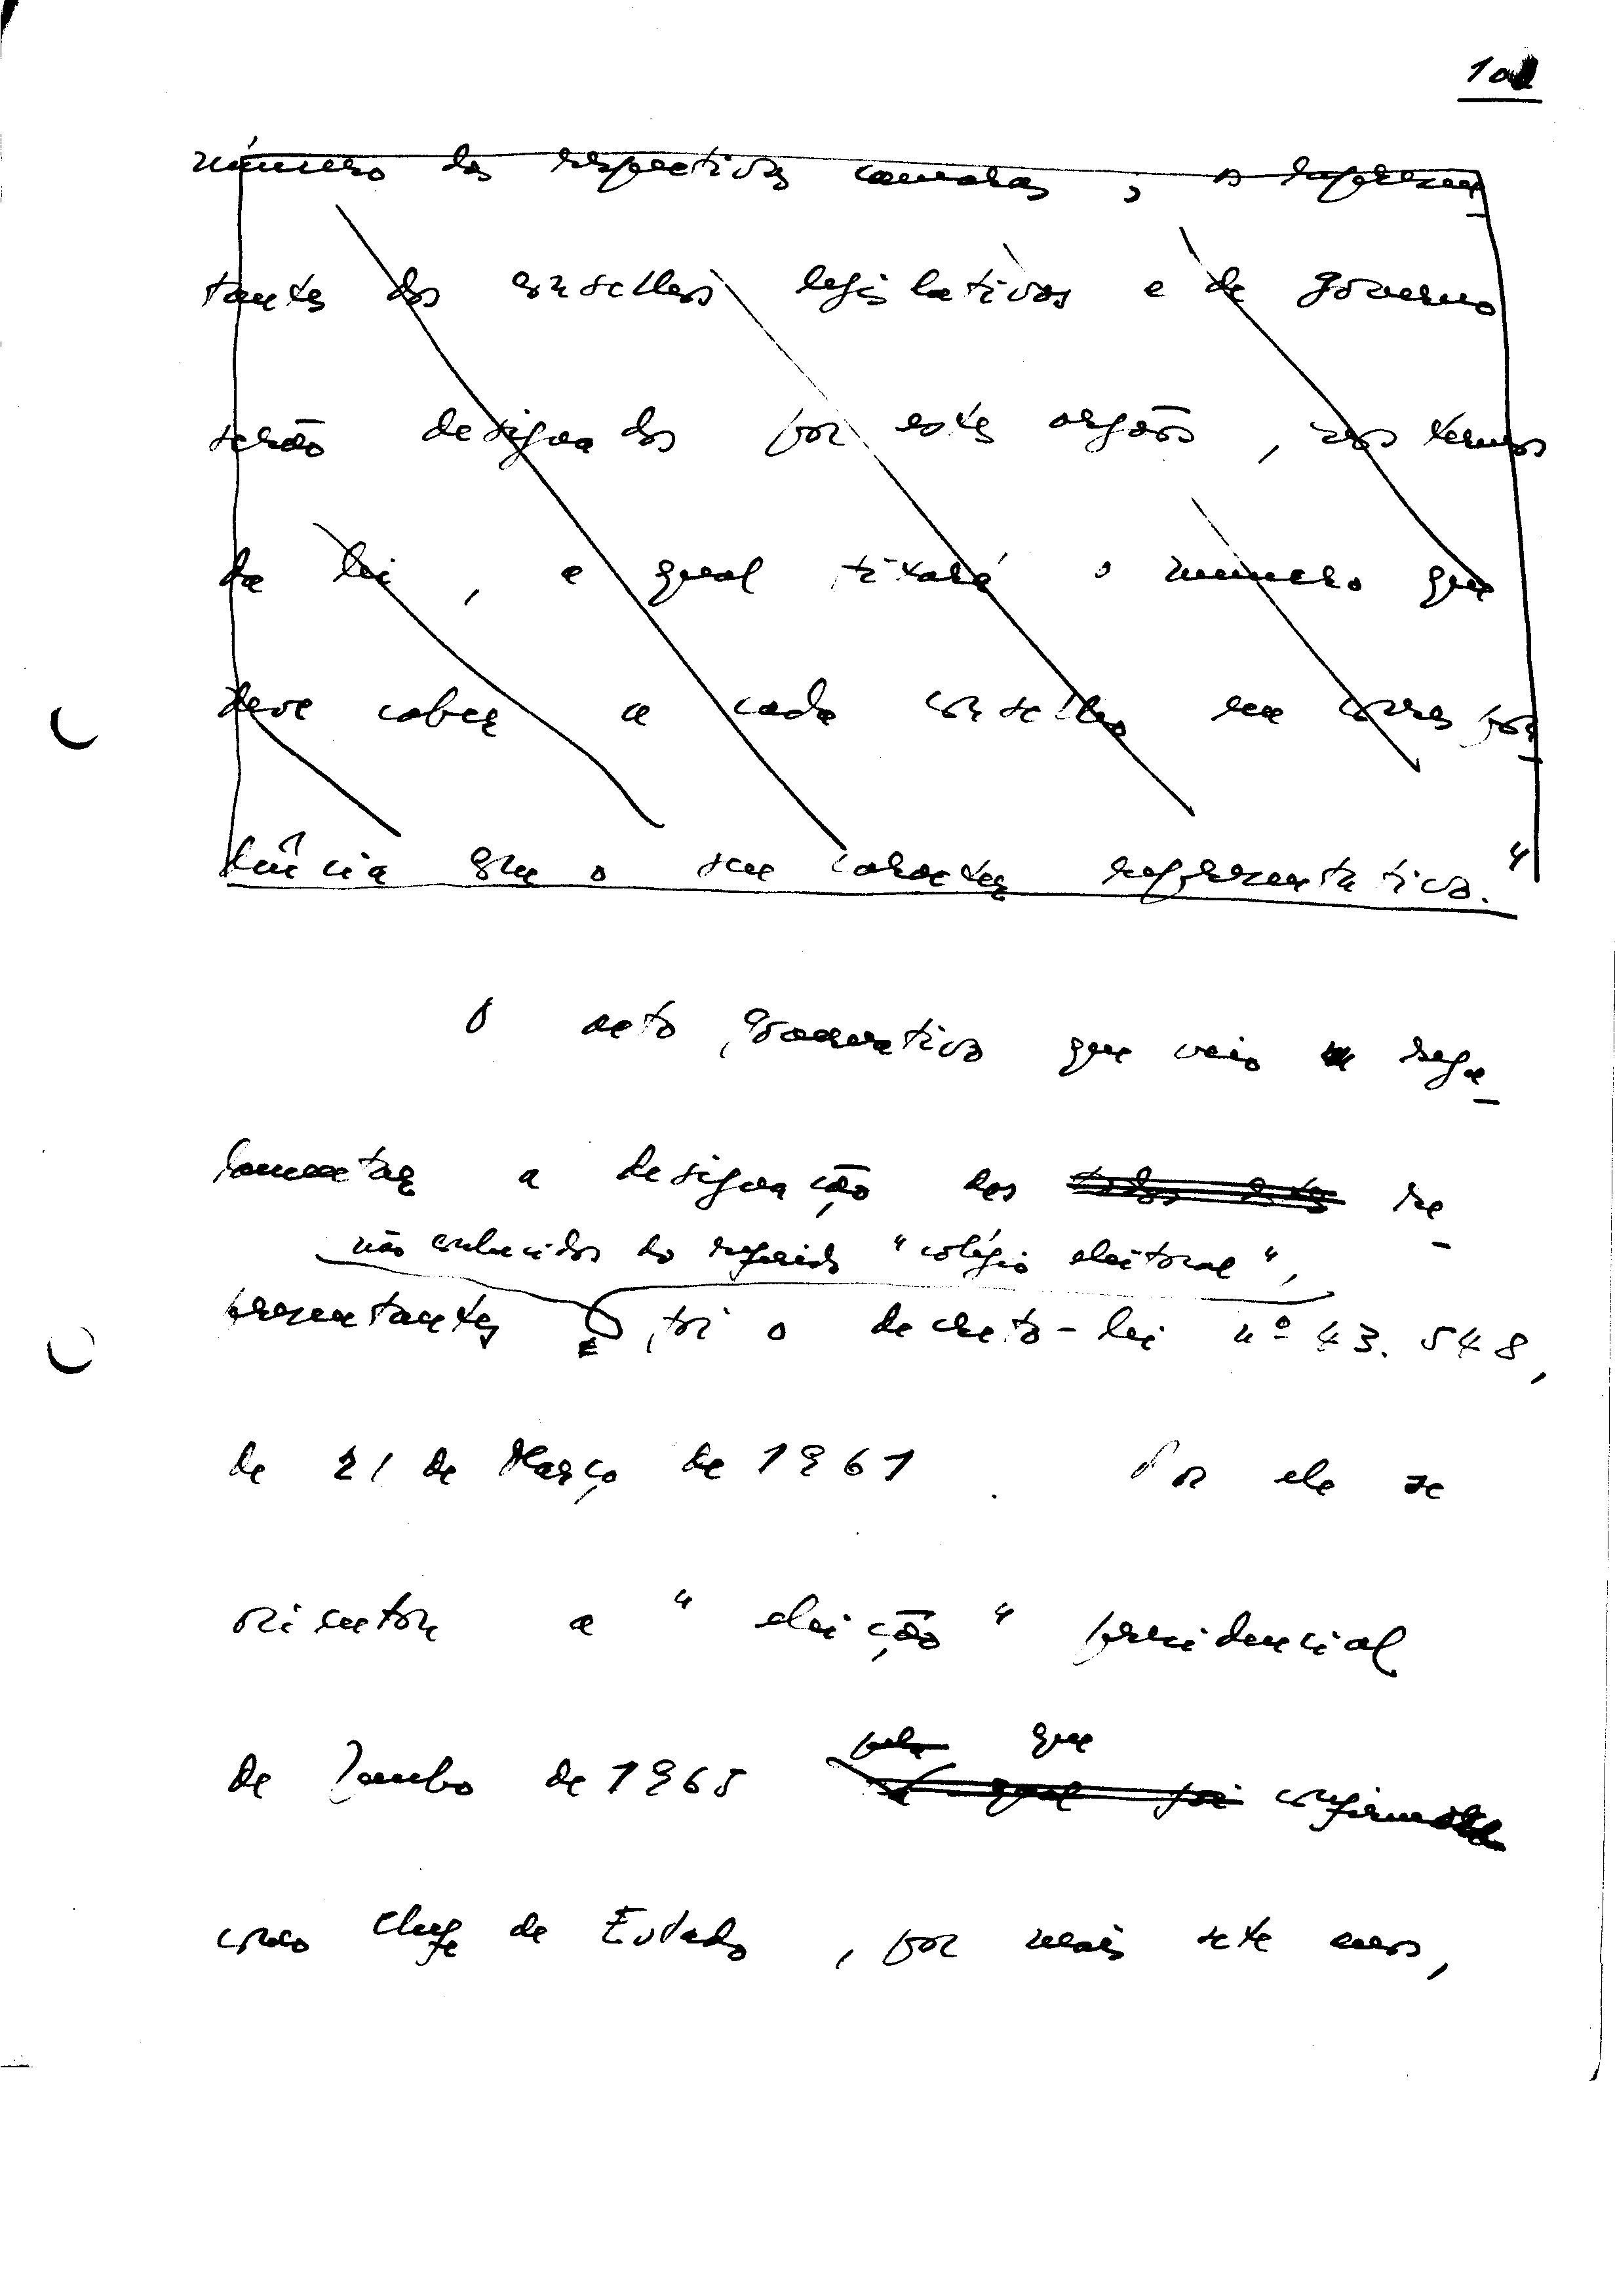 10
número das respectivas camaras; os represen-
tantes dos conselhos legislativos e de governo
serão designados por estes orgãos, nos termos
da lei, a qual fixará o numero que
deve caber a cada conselho em corres pon-
dência com o seu caracter representativo."
O acto governativo que veio regu-
lamentar a designação dos todos estes re-
não conhecidos do referido "colégio eleitoral",
presentantes foi o decreto-lei nº 43.548,
de 21 de Março de 1961. Por ele se
orientou a "eleição" presidencial
pela que
de Junho de 1965 a qual foi confirmou
como Chefe de Estado, por mais sete anos,